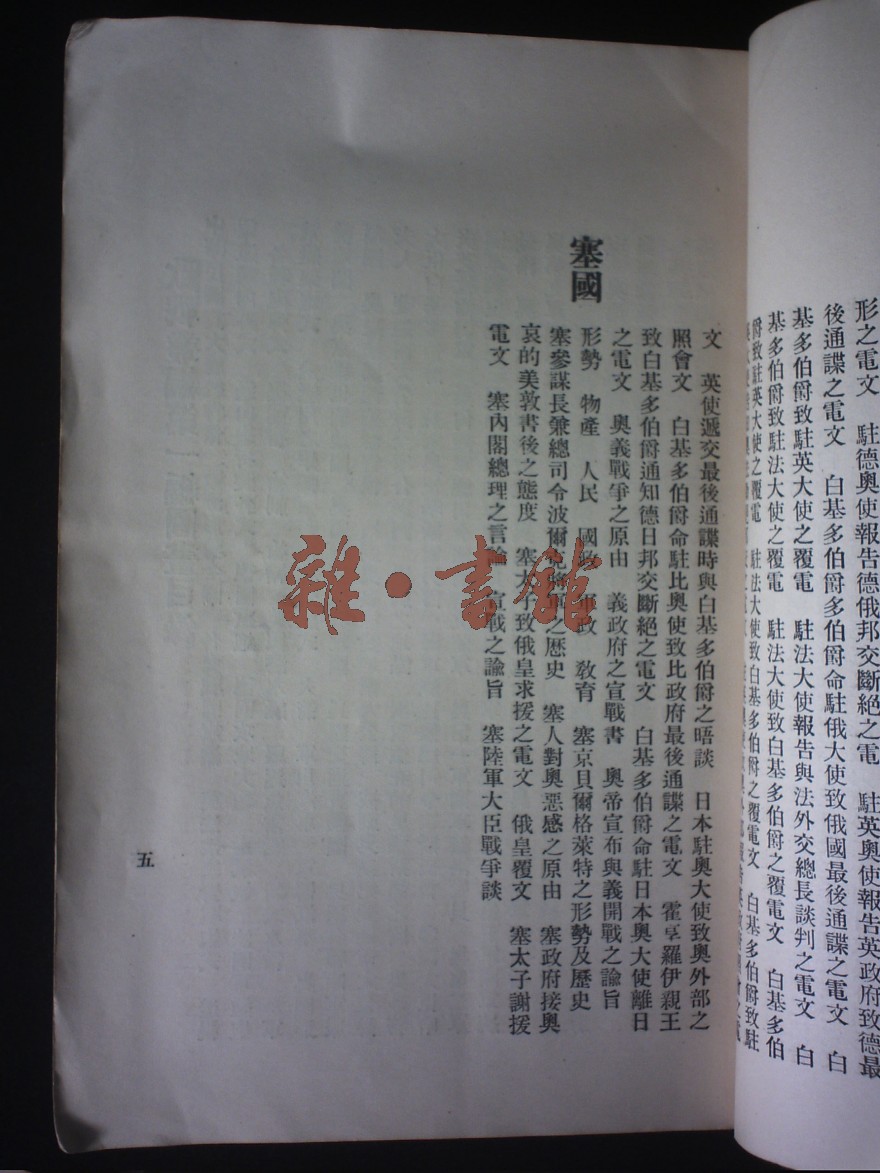 形之電文　駐德奧使報告德俄邦交斷絕之電　駐英奧使報告英政府致德最
後通諜之電文　白基多伯爵多伯爵命駐俄大使致俄國最後通諜之電文　白
基多伯爵致駐英大使之覆電　駐法大使報告與法外交總長談判之電文　白
基多伯爵致駐法大使之覆電　駐法大使致白基多伯爵之覆電文　白基多伯
爵致駐英大使之覆電　駐法大使致白基多伯爵之覆電文　白基多伯爵致駐
文　英使遞交最後通諜時與白基多伯爵之晤談　日本駐奧大使致奧外部之
照會文　白基多伯爵命駐比奧使致比政府最後通諜之電文　霍亨羅伊親王
致白基多伯爵通知德日邦交斷絕之電文　白基多伯爵命駐日本奧大使離日
之電文　奧義戰爭之原由　義政府之宣戰書　奧帝宣布與義開戰之諭旨
塞國
形勢　物產　人民　國政　軍政　教育　塞京貝爾格萊特之形勢及歷史
塞參謀長兼總司令波爾克將軍之歷史　塞人對奧惡感之原由　塞政府接奧
哀的美敦書後之態度　塞太子致俄皇求援之電文　俄皇覆文　塞太子謝援
電文　塞內閣總理之言論　宣戰之諭旨　塞陸軍大臣戰爭談
五
雜·書館